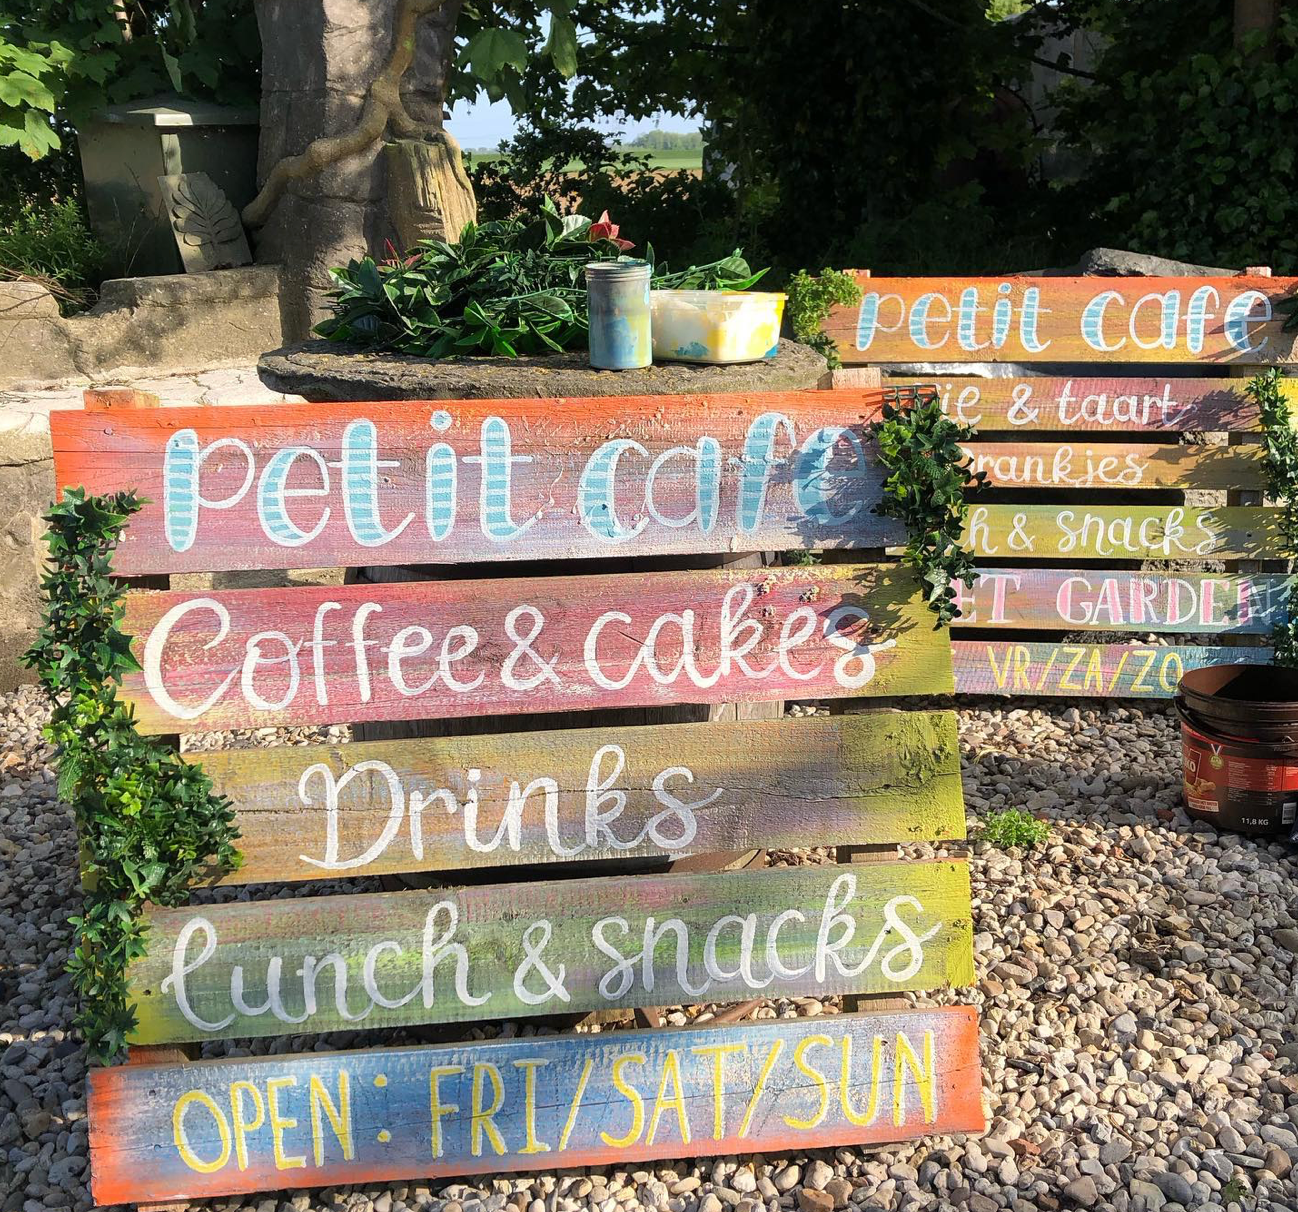 petit cafe
Coffee & cakes
Drinks
lunch & snacks
OPEN: FRI/SAT/SUN
petit cafe
& taart
& snacks
GARDEN
VR/ZA/ZO
11,8 KG